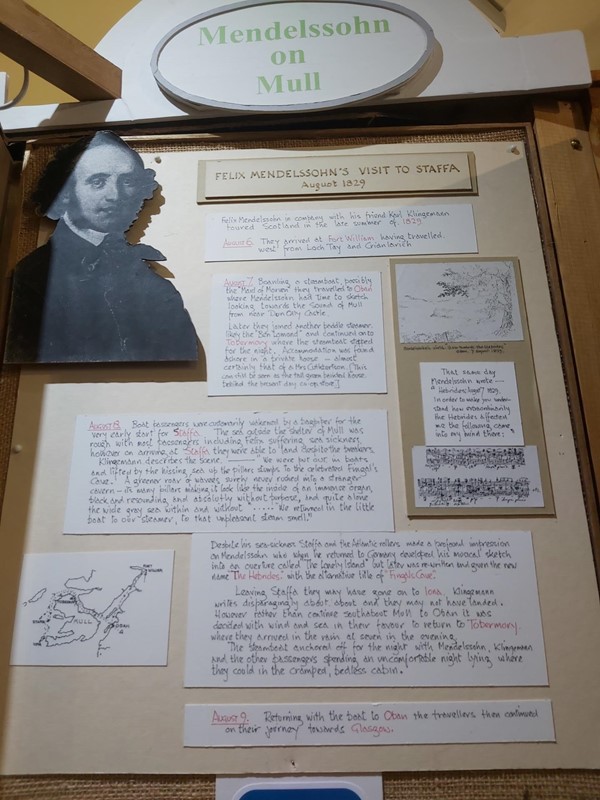 Mendelssohn
on
Mull
FELIX MENDELSSOHN'S VISIT TO STAFFA
August 1829
Felix Mendelssohn in company with his friend Karl Klingemann
toured Scotland in the late summer of 1829.
August 6. They arrived at Fort William having travelled
west from Loch Tay and Crianlarich
August 7. Boarding a steamboat, possibly
the "Maid of Morven" they travelled to Oban
where Mendelssohn had time to sketch
looking towards the Sound of Mull
from near Dunolly Castle.
Later they joined another paddle steamer,
likely the "Ben Lomond" and continued onto
Tobermory where the steamboat stopped
for the night. Accommodation was found
ashore in a private house - almost
certainly that of a Mrs Cuthbertson. [This
can still be seen as the tall green painted house
behind the present day co-op store]
That same day
Mendelssohn wrote -
"Hebrides, August 7 1829.
In order to make you under-
stand how extraordinarily
the Hebrides affected
me the following came
into my mind there:"
August 8. Boat passengers were customarily wakened by a bagpiper for the
very early start for Staffa. The sea outside the shelter of Mull was
rough with most passengers including Felix suffering sea sickness,
however on arriving at Staffa they were able to land despite the breakers.
Klingemann describes the scene, "We were put out in boats
and lifted by the hissing sea up the pillar stumps to the celebrated Fingal's
Cave. A greener roar of waves surely never rushed into a stranger
cavern - its many pillars making it look like the inside of an immense organ,
black and resounding, and absolutely without purpose, and quite alone
the wide grey sea within and without" ..... "We returned in the little
boat to our steamer, to that unpleasant steam smell."
Despite his sea-sickness Staffa and the Atlantic rollers made a profound impression
on Mendelssohn who when he returned to Germany developed his musical sketch
into an overture called 'The Lonely Island' but later was re-written and given the new
name "The Hebrides", with the alternative title of "Fingal's Cave."
Leaving Staffa they may have gone on to Iona. Klingemann
writes disparagingly about about and they may not have landed.
However rather than continue southabout Mull to Oban it was
decided with wind and sea in their favour to return to Tobermory.
where they arrived in the rain at seven in the evening.
The steamboat anchored off for the night with Mendelssohn, Klingemann
and the other passengers spending an uncomfortable night lying where
they could in the cramped, bedless cabin.
MULL
OBAN
August 9. Returning with the boat to Oban the travellers then continued
on their journey towards Glasgow.